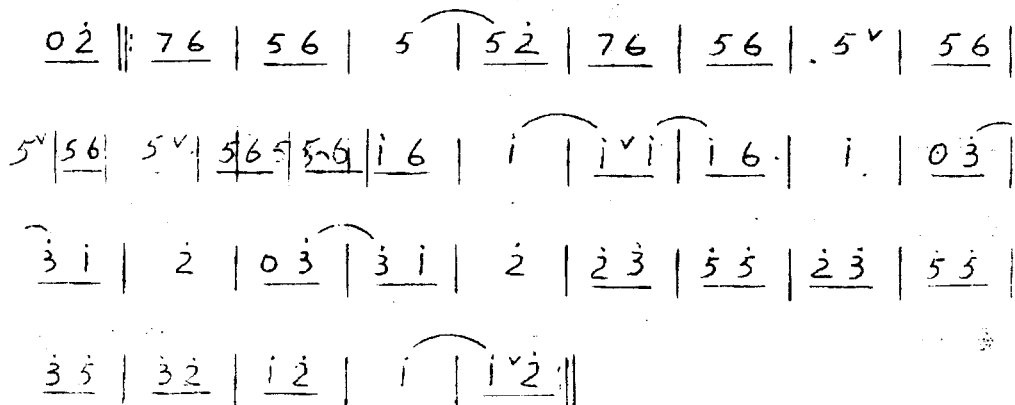 0 2̇ ‖: 7 6 | 5 6 | 5 | 5 2̇ | 7 6 | 5 6 | 5 ᵛ | 5 6 |
5 ᵛ | 5 6 | 5 ᵛ | 5 6 5 | 5 6 | i̇ 6 | i̇ | i̇ ᵛ i̇ | i̇ 6 | i̇ | 0 3̇ |
3̇ i̇ | 2̇ | 0 3̇ | 3̇ i̇ | 2̇ | 2̇ 3̇ | 5̇ 5̇ | 2̇ 3̇ | 5̇ 5̇ |
3̇ 5̇ | 3̇ 2̇ | i̇ 2̇ | i̇ | i̇ ᵛ 2̇ :‖